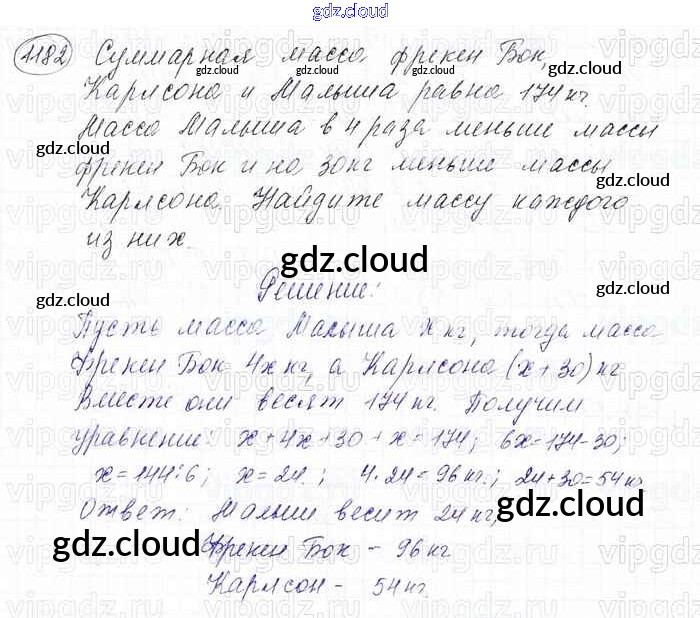 gdz.cloud
1182 Суммарная масса фрекен Бок,
Карлсона и Малыша равна 174 кг.
Масса Малыша в 4 раза меньше массы
фрекен Бок и на 30 кг меньше массы
Карлсона. Найдите массу каждого
из них.
Решение:
Пусть масса Малыша x кг, тогда масса
Фрекен Бок 4x кг, а Карлсона (x+30) кг
Вместе они весят 174 кг. Получим
уравнение: x+4x+30+x=174; 6x=174-30;
x=144:6; x=24.; 4·24=96 кг.; 24+30=54 кг
Ответ: Малыш весит 24 кг,
Фрекен Бок - 96 кг
Карлсон - 54 кг.